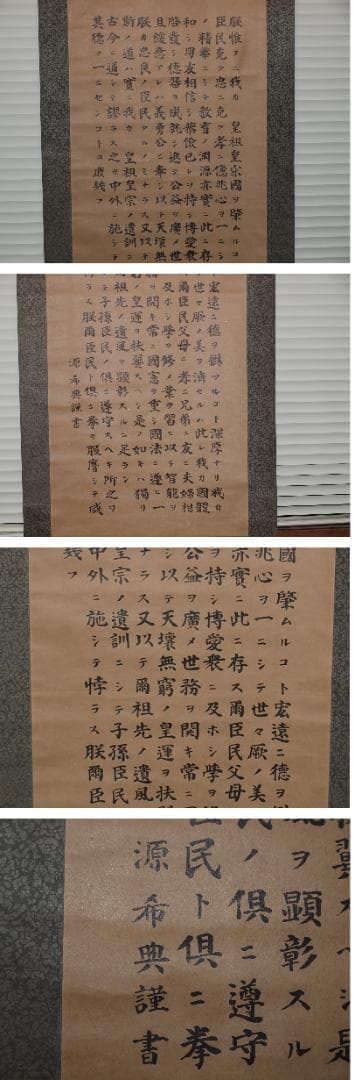 朕惟フニ我カ 皇祖皇宗國ヲ肇ムルコ
臣民克ク忠ニ克ク孝ニ億兆心ヲ一ニシ
ノ精華ニシテ教育ノ淵源亦實ニ此ニ存
和シ朋友相信シ恭儉己レヲ持シ博愛衆
啓發シ德器ヲ成就シ進テ公益ヲ廣メ世
且緩急アレハ義勇公ニ奉シ以テ天壤無
朕カ忠良ノ臣民タルノミナラス又以テ
斯ノ道ハ實ニ我カ 皇祖皇宗ノ遺訓ニ
古今ニ通シテ謬ラス之ヲ中外ニ施シテ
其德ヲ一ニセンコトヲ庶幾フ
宏遠ニ德ヲ樹ツルコト深厚ナリ我カ
世々厥ノ美ヲ濟セルハ此レ我カ國體
爾臣民父母ニ孝ニ兄弟ニ友ニ夫婦相
ホシ學ヲ修メ業ヲ習ヒ以テ智能ヲ
務ヲ開キ常ニ國憲ヲ重シ國法ニ遵ヒ一
ノ皇運ヲ扶翼スヘシ是ノ如キハ獨リ
祖先ノ遺風ヲ顯彰スルニ足ラン
テ子孫臣民ノ俱ニ遵守スヘキ所之ヲ
ラス朕爾臣民ト俱ニ拳々服膺シテ咸
源希典謹書
國ヲ肇ムルコト宏遠ニ德ヲ
兆心ヲ一ニシテ世々厥ノ美
亦實ニ此ニ存ス爾臣民父母
ヲ持シ博愛衆ニ及ホシ學ヲ
公益ヲ廣メ世務ヲ開キ常ニ
シ以テ天壤無窮ノ皇運ヲ扶
ナラス又以テ爾祖先ノ遺風
皇宗ノ遺訓ニシテ子孫臣民
中外ニ施シテ悖ラス朕爾臣
幾フ
翼スヘシ是
ヲ顯彰スル
ノ俱ニ遵守
民ト俱ニ拳
源希典謹書